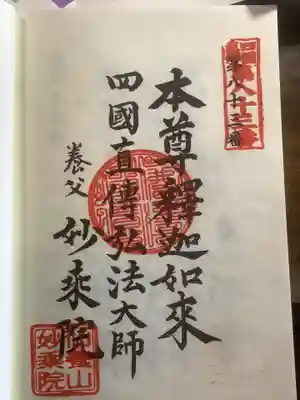 第八十三番
本尊釋迦如來
四國直傳弘法大師
養父 妙乘院
妙乘院